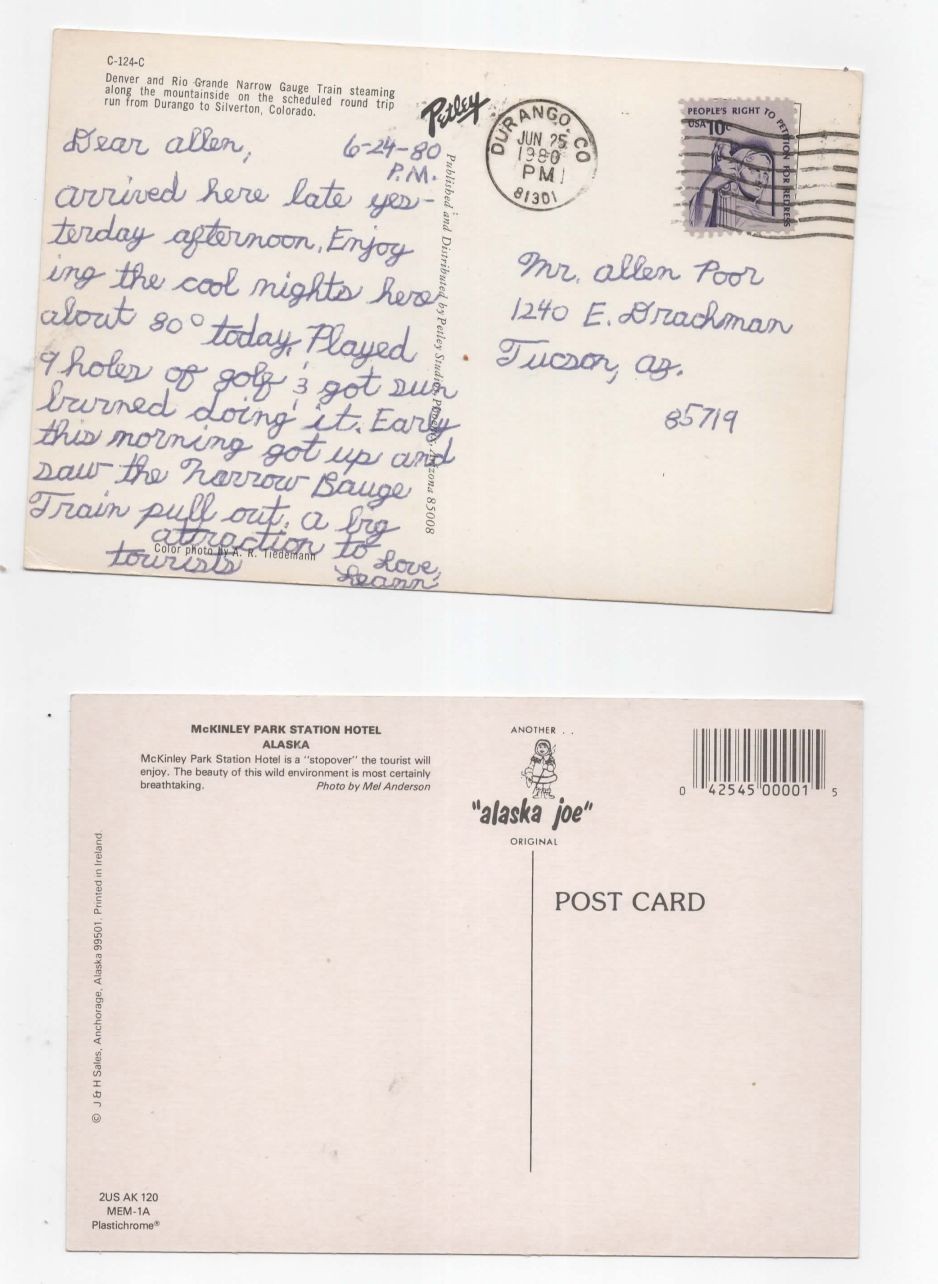 C-124-C
Denver and Rio Grande Narrow Gauge Train steaming
along the mountainside on the scheduled round trip
run from Durango to Silverton, Colorado.
Petley
DURANGO, CO
JUN 25
1980
PM
81301
PEOPLE'S RIGHT TO PETITION FOR REDRESS
USA 10c
Dear allen,
6-24-80
P.M.
arrived here late yes-
terday afternoon. Enjoy
ing the cool nights here
about 80° today. Played
9 holes of golf & got sun
burned doing it. Early
this morning got up and
saw the Narrow Gauge
Train pull out, a big
attraction to
tourists
Love,
Leann
Color photo by A. R. Tiedemann
Published and Distributed by Petley Studios, Phoenix, Arizona 85008
Mr. allen Poor
1240 E. Drachman
Tucson, az.
85719
McKINLEY PARK STATION HOTEL
ALASKA
McKinley Park Station Hotel is a "stopover" the tourist will
enjoy. The beauty of this wild environment is most certainly
breathtaking.
Photo by Mel Anderson
ANOTHER . .
"alaska joe"
ORIGINAL
0 42545 00001 5
POST CARD
© J & H Sales, Anchorage, Alaska 99501. Printed in Ireland.
2US AK 120
MEM-1A
Plastichrome®